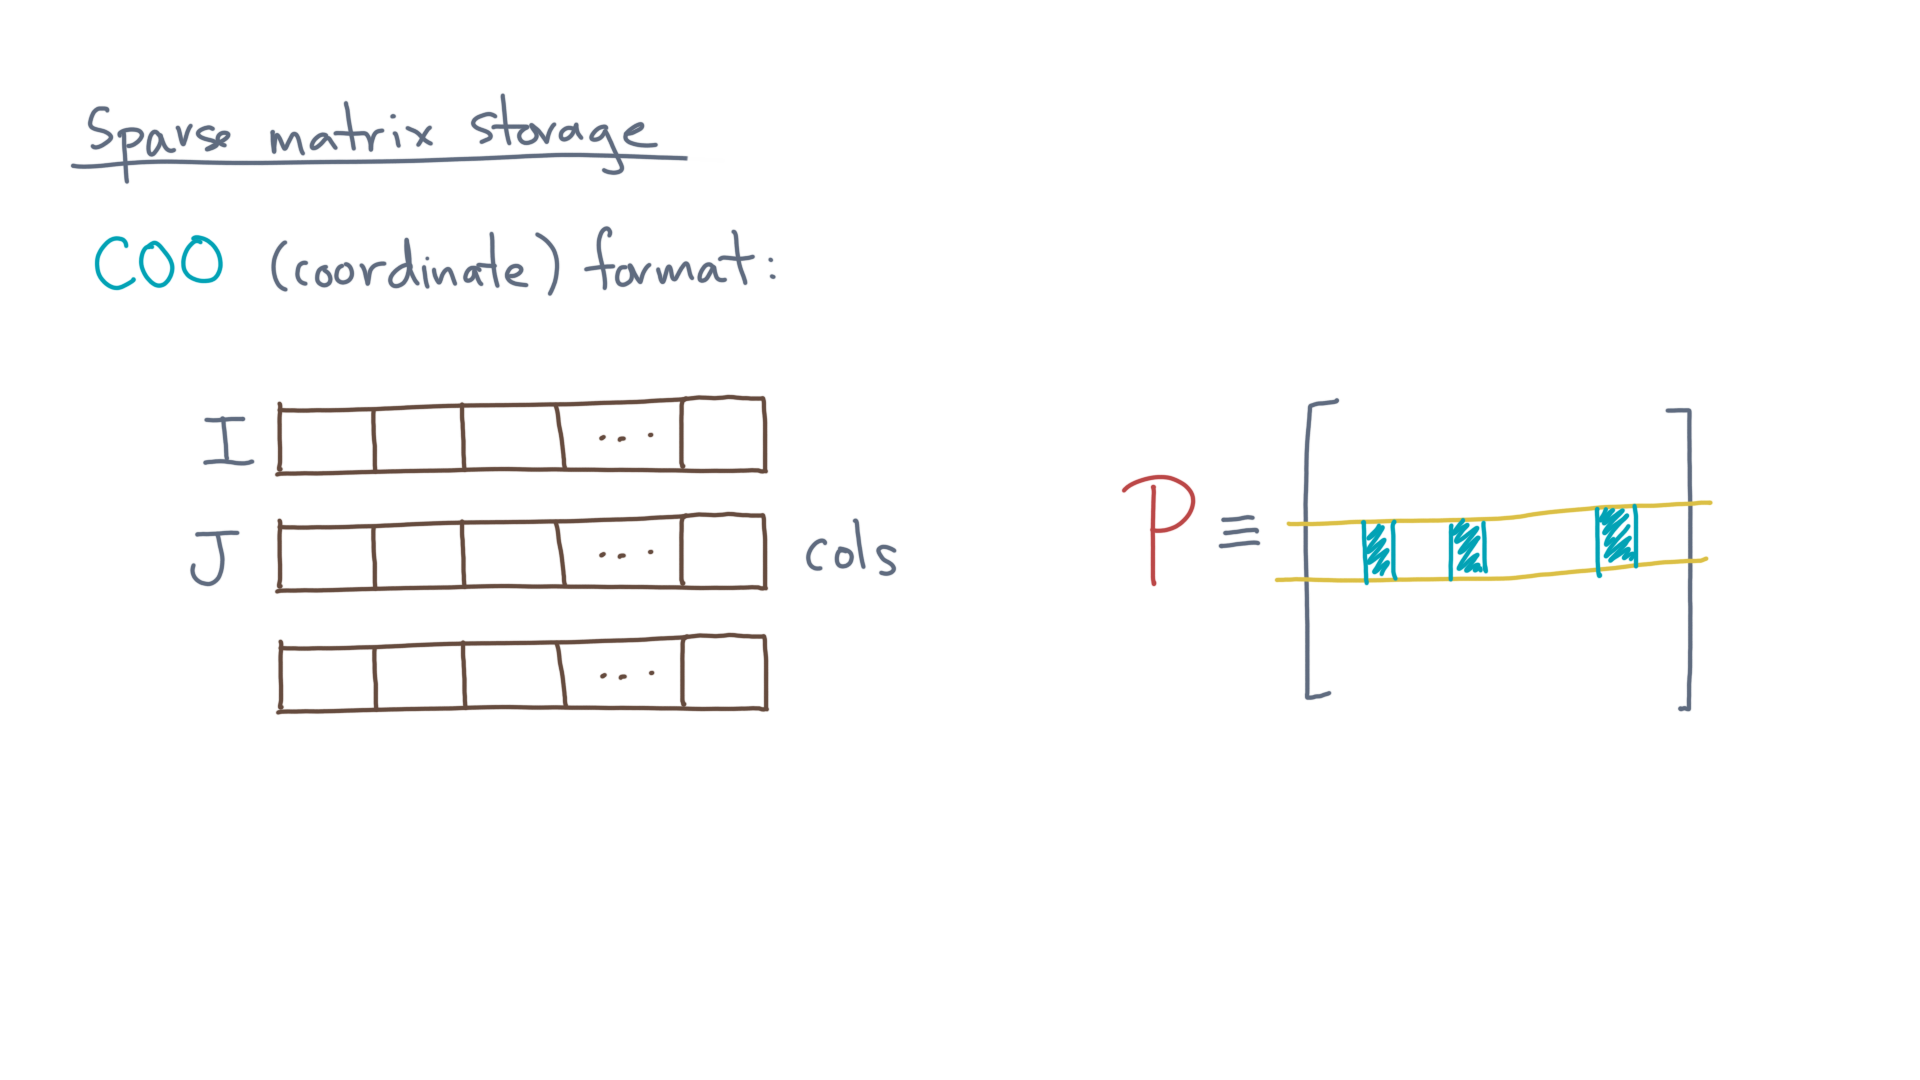 Sparse matrix storage
COO (coordinate) format:
I ...
J ... cols
...
P ≡